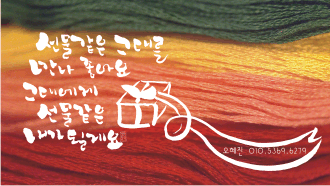 선물같은 그대를
만나 좋아요
그대에게
선물같은
내가 될게요
오혜진 010.5369.6219